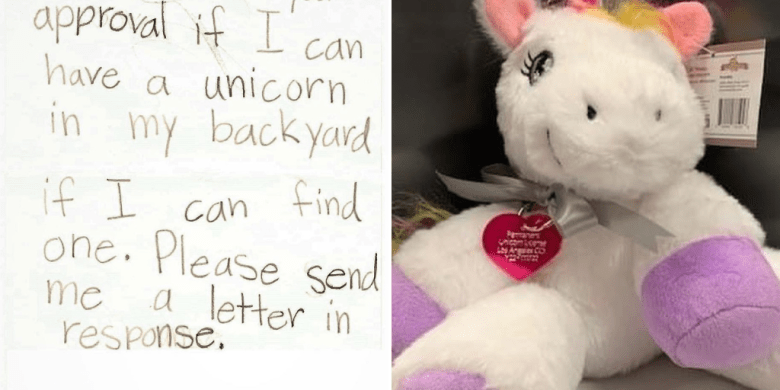 approval if I can
have a unicorn
in my backyard
if I can find
one. Please send
me a letter in
response.
Permanent
Unicorn License
Los Angeles CO